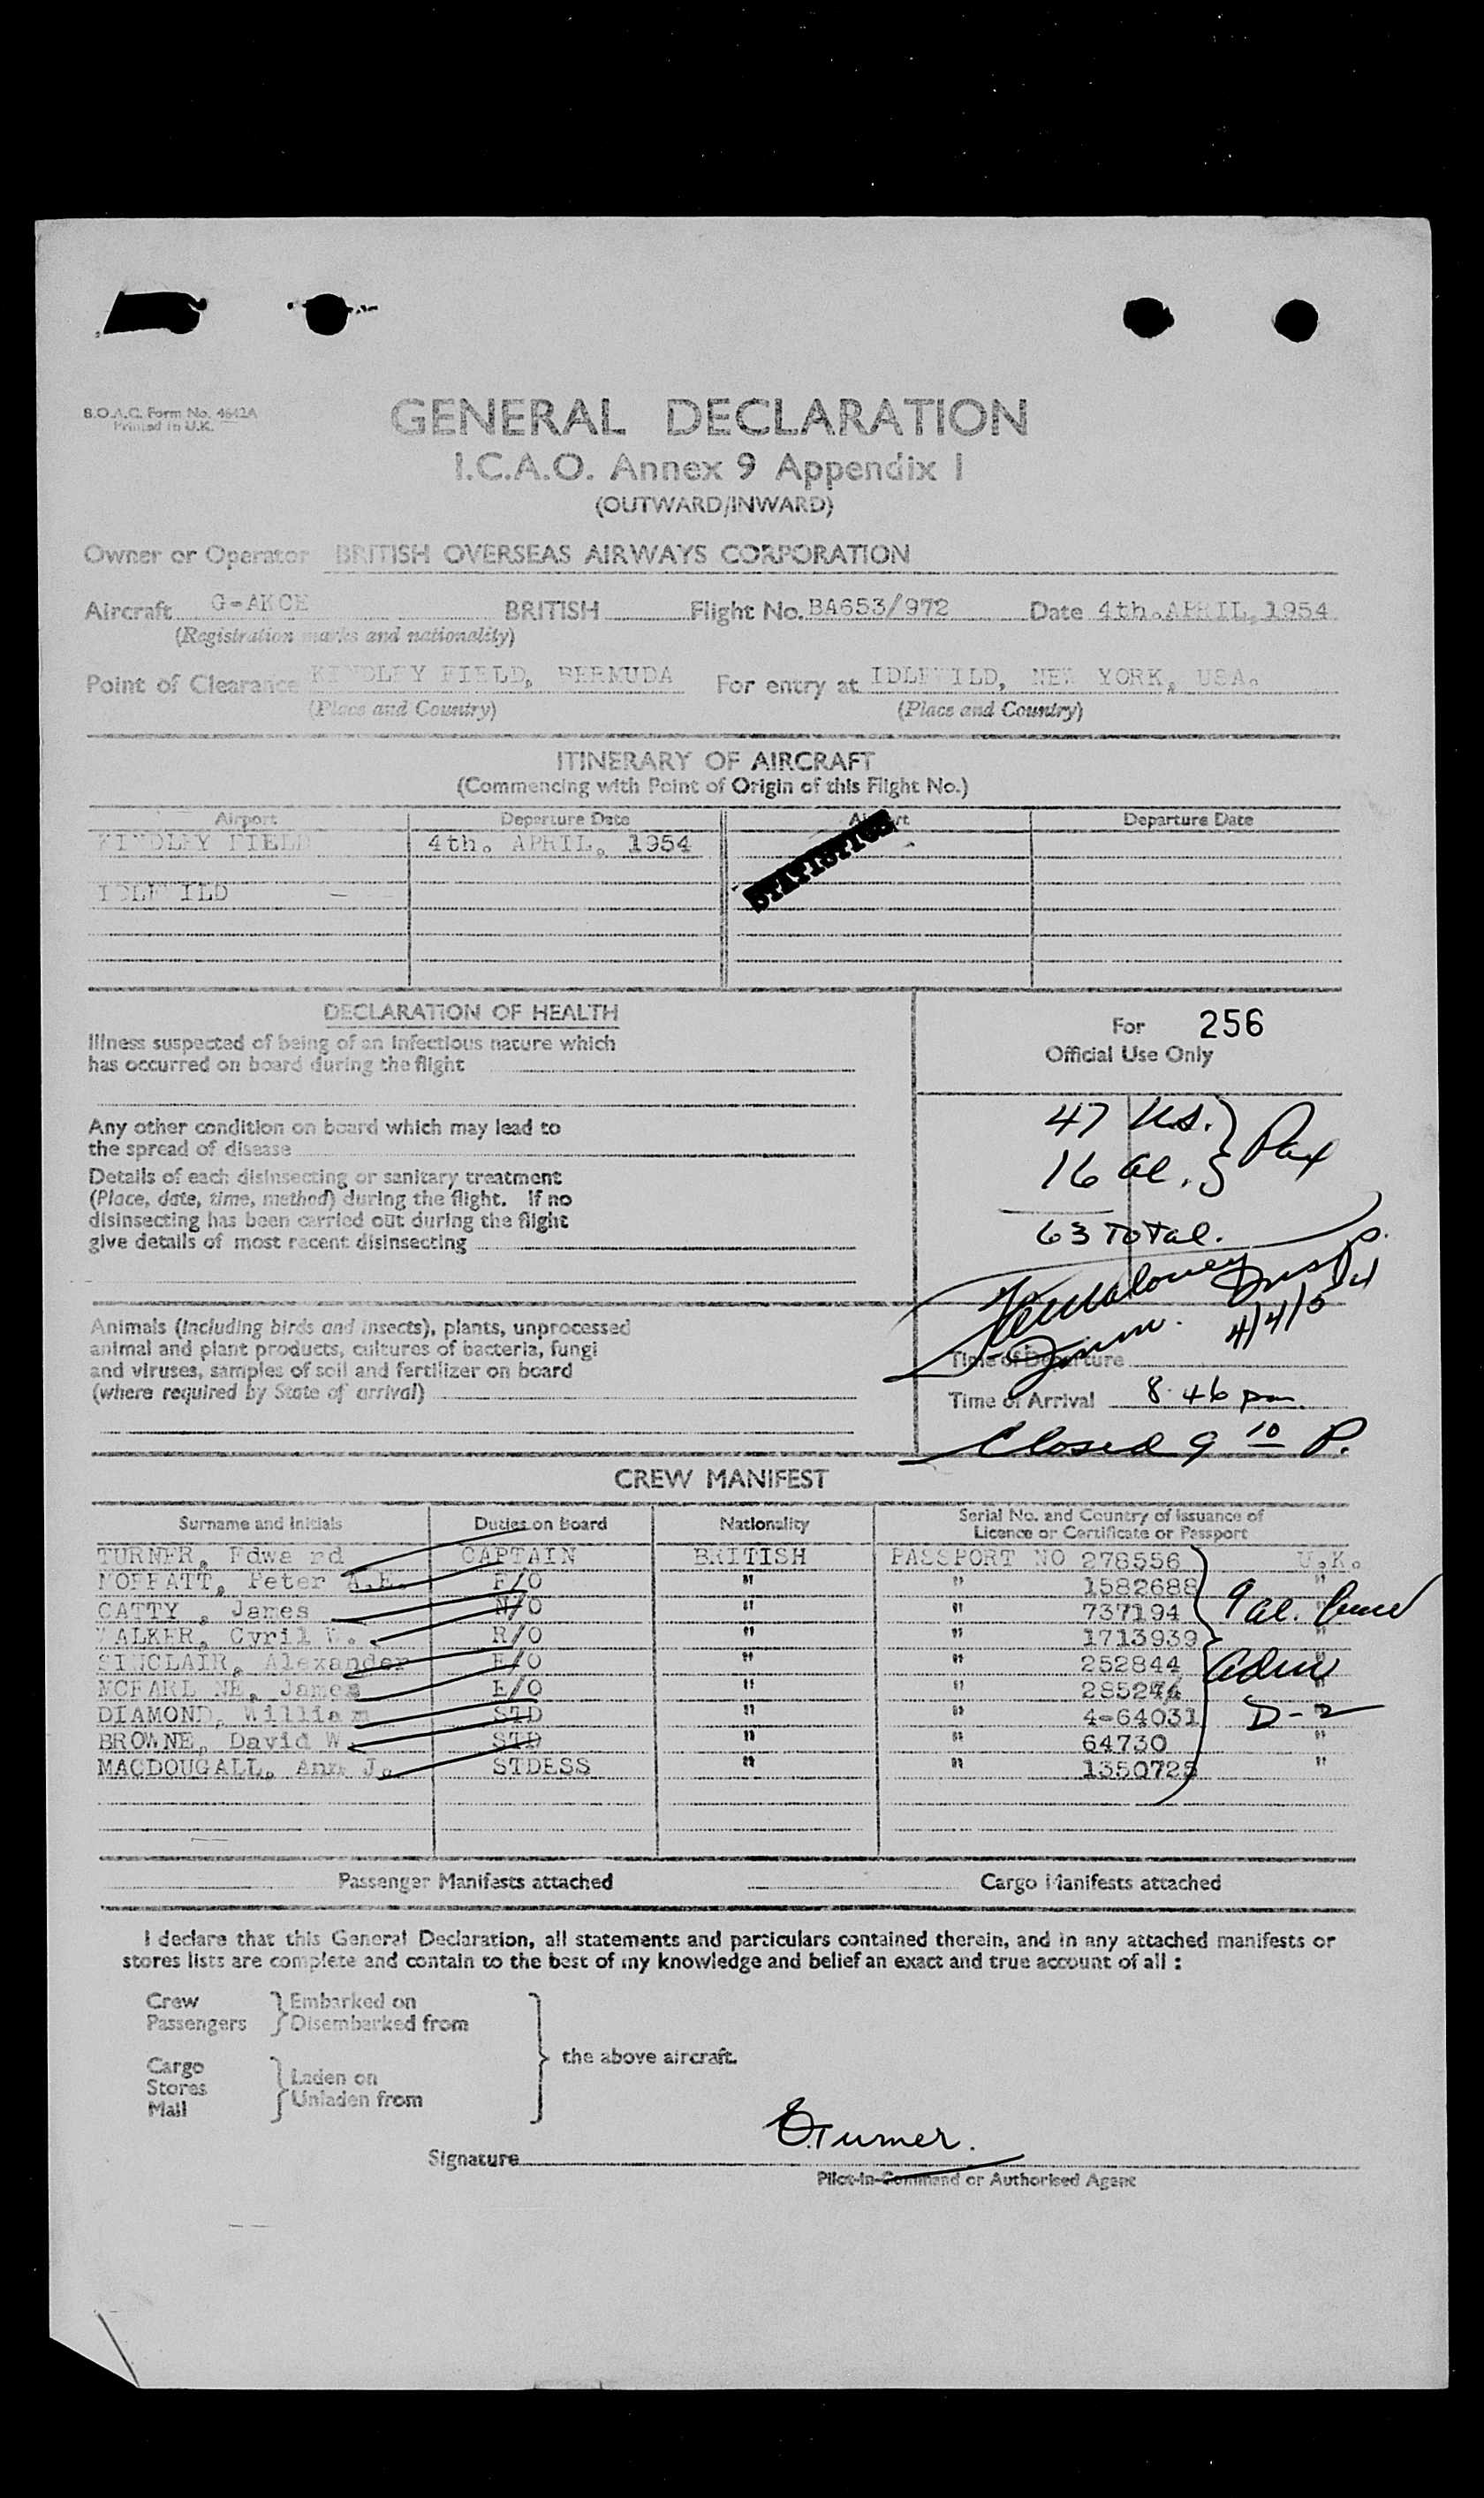 B.O.A.C. Form No. 4642A
Printed in U.K.
GENERAL DECLARATION
I.C.A.O. Annex 9 Appendix I
(OUTWARD/INWARD)
Owner or Operator BRITISH OVERSEAS AIRWAYS CORPORATION
Aircraft G-AKCE BRITISH Flight No. BA653/972 Date 4th. APRIL, 1954
(Registration marks and nationality)
Point of Clearance KINDLEY FIELD, BERMUDA For entry at IDLEWILD, NEW YORK, USA.
(Place and Country) (Place and Country)
ITINERARY OF AIRCRAFT
(Commencing with Point of Origin of this Flight No.)
Airport Departure Date Airport Departure Date
KINDLEY FIELD 4th. APRIL, 1954
STATISTICS
IDLEWILD
DECLARATION OF HEALTH
Illness suspected of being of an infectious nature which
has occurred on board during the flight
Any other condition on board which may lead to
the spread of disease
Details of each disinsecting or sanitary treatment
(Place, date, time, method) during the flight. If no
disinsecting has been carried out during the flight
give details of most recent disinsecting
Animals (including birds and insects), plants, unprocessed
animal and plant products, cultures of bacteria, fungi
and viruses, samples of soil and fertilizer on board
(where required by State of arrival)
For 256
Official Use Only
47 U.S. } Pax
16 al. }
63 Total.
Insp.
4/4/54
Time of Departure
Time of Arrival 8.46 pm.
Closed 9 10 P.
CREW MANIFEST
Surname and Initials Duties on Board Nationality Serial No. and Country of issuance of
Licence or Certificate or Passport
TURNER, Edward CAPTAIN BRITISH PASSPORT NO 278556 U.K.
MOFFATT, Peter A.E. F/O " " 1582688 "
CATTY, James N/O " " 737194 " 9 al. Crew
WALKER, Cyril W. R/O " " 1713939 "
SINCLAIR, Alexander E/O " " 252844 " adm
MCFARLANE, James E/O " " 285274 "
DIAMOND, William STD " " 4-64031 " D-2
BROWNE, David W. STD " " 64730 "
MACDOUGALL, Ann J. STDESS " " 1350725 "
Passenger Manifests attached Cargo Manifests attached
I declare that this General Declaration, all statements and particulars contained therein, and in any attached manifests or
stores lists are complete and contain to the best of my knowledge and belief an exact and true account of all :
Crew } Embarked on
Passengers } Disembarked from
the above aircraft.
Cargo
Stores } Laden on
Mail } Unladen from
Signature E. Turner.
Pilot-in-Command or Authorised Agent